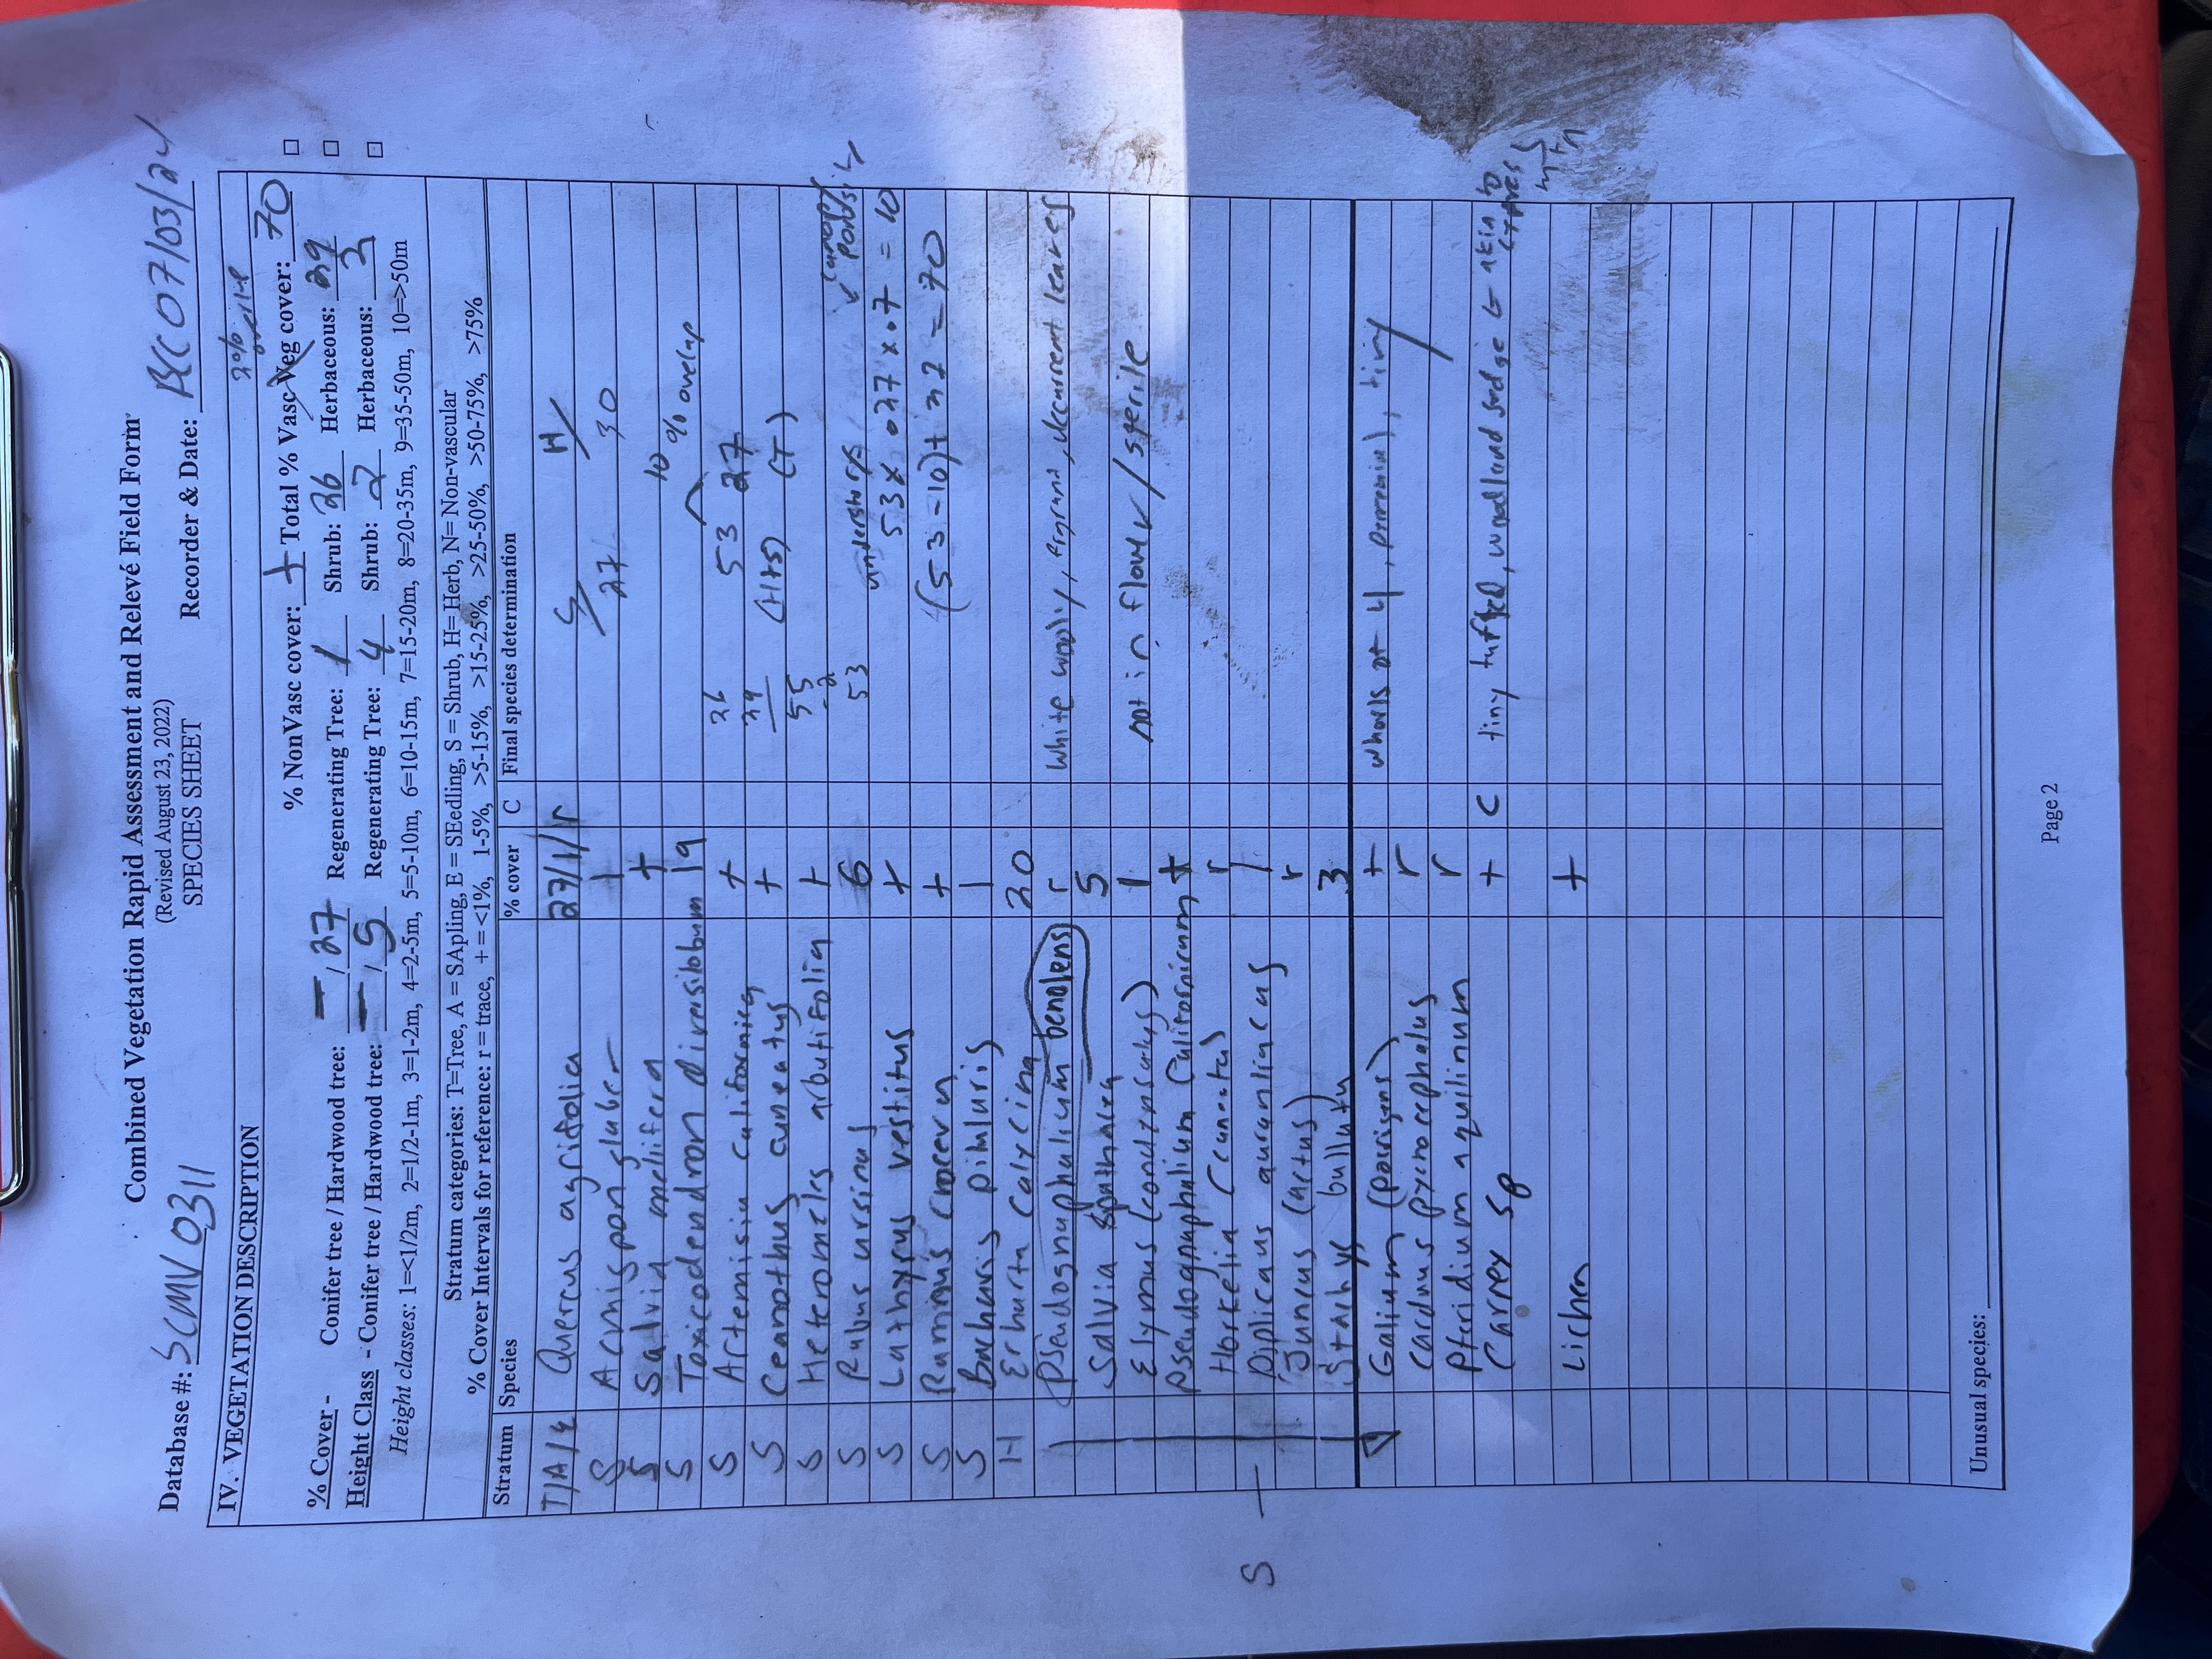 Combined Vegetation Rapid Assessment and Relevé Field Form
(Revised August 23, 2022)
SPECIES SHEET
Database #: SCMV0311 Recorder & Date: BCC 07/03/24
IV. VEGETATION DESCRIPTION
% NonVasc cover: + Total % Vasc Veg cover: 70
% Cover - Conifer tree / Hardwood tree: — / 27 Regenerating Tree: 1 Shrub: 26 Herbaceous: 29
Height Class - Conifer tree / Hardwood tree: — / 5 Regenerating Tree: 4 Shrub: 2 Herbaceous: 2
Height classes: 1=<1/2m, 2=1/2-1m, 3=1-2m, 4=2-5m, 5=5-10m, 6=10-15m, 7=15-20m, 8=20-35m, 9=35-50m, 10=>50m
Stratum categories: T=Tree, A = SApling, E = SEedling, S = Shrub, H= Herb, N= Non-vascular
% Cover Intervals for reference: r = trace, + = <1%, 1-5%, >5-15%, >15-25%, >25-50%, >50-75%, >75%
Stratum Species % cover C Final species determination
T/A/E Quercus agrifolia 27/1/r S/ H/
S Acmispon glaber 1 27 30
S Salvia mellifera +
S Toxicodendron diversilobum 19 10% overlap
S Artemisia californica + 26 53 27
S Ceanothus cuneatus + 29 (H+S) (T)
S Heteromeles arbutifolia + 55
S Rubus ursinus 6 -2 understory
S Lathyrus vestitus + 53 53 x .27 x .7 = 10
S Ramnus crocera + (53-10)+27 = 70
S Baccharis pilularis 1
H Erharta calycina 20
Pseudognaphalium benolens r White wooly, fragrant, decurrent leaves
Salvia spathacea 5
Elymus (condensatus) 1 not in flower / sterile
Pseudognaphalium californicum +
Horkelia (cuneata) r
S — Diplicaus aurantiacus 1
Juncus (actus) r
Stachys bullata 3
Galium (porrigens) + whorls of 4, perennial, tiny
Carduus pycnocephalus r
Pteridium aquilinum r
Carex sp + C tiny tufted, woodland sedge
Lichen +
Unusual species:
Page 2